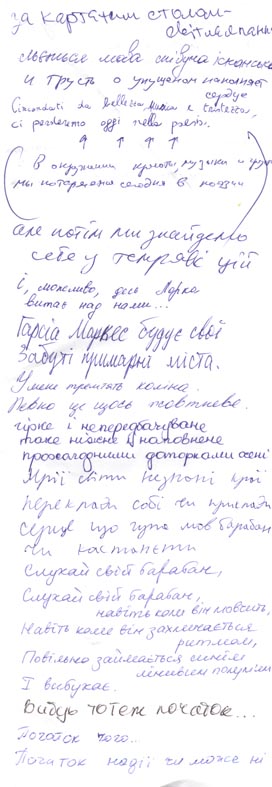 за картатим столом-
світляпани
ллється мова співуча іспанська
и грусть о упущеном наполняет
сердце
Circondati da bellezza, musica e tristezza,
ci perdiamo oggi nella poesia.
↑ ↑ ↑ ↑
В окружении красоты, музыки и грусти
мы потеряны сегодня в поэзии
але потім ми знайдемо
себе у темряві цій
І, можливо, десь Лорка
витає над нами...
Гарсіа Маркес будує свої
Забуті примарні міста.
У мене тремтять коліна.
Певно це щось жовтневе.
гірке і непередбачуване
таке ніжне й наповнене
прохолодними доторками осені
Мрії світи незнані краї
переклади собі чи приклади
серце що гупа мов барабан
чи кастаньєти
Слухай свій барабан,
Слухай свій барабан,
навіть коли він мовчить,
Навіть коли він захлинається
ритмом,
Повільно займається синім
лінивим полум'ям
І вибухає.
Вибух тотеж початок...
Початок чого...
Початок надії чи може ні